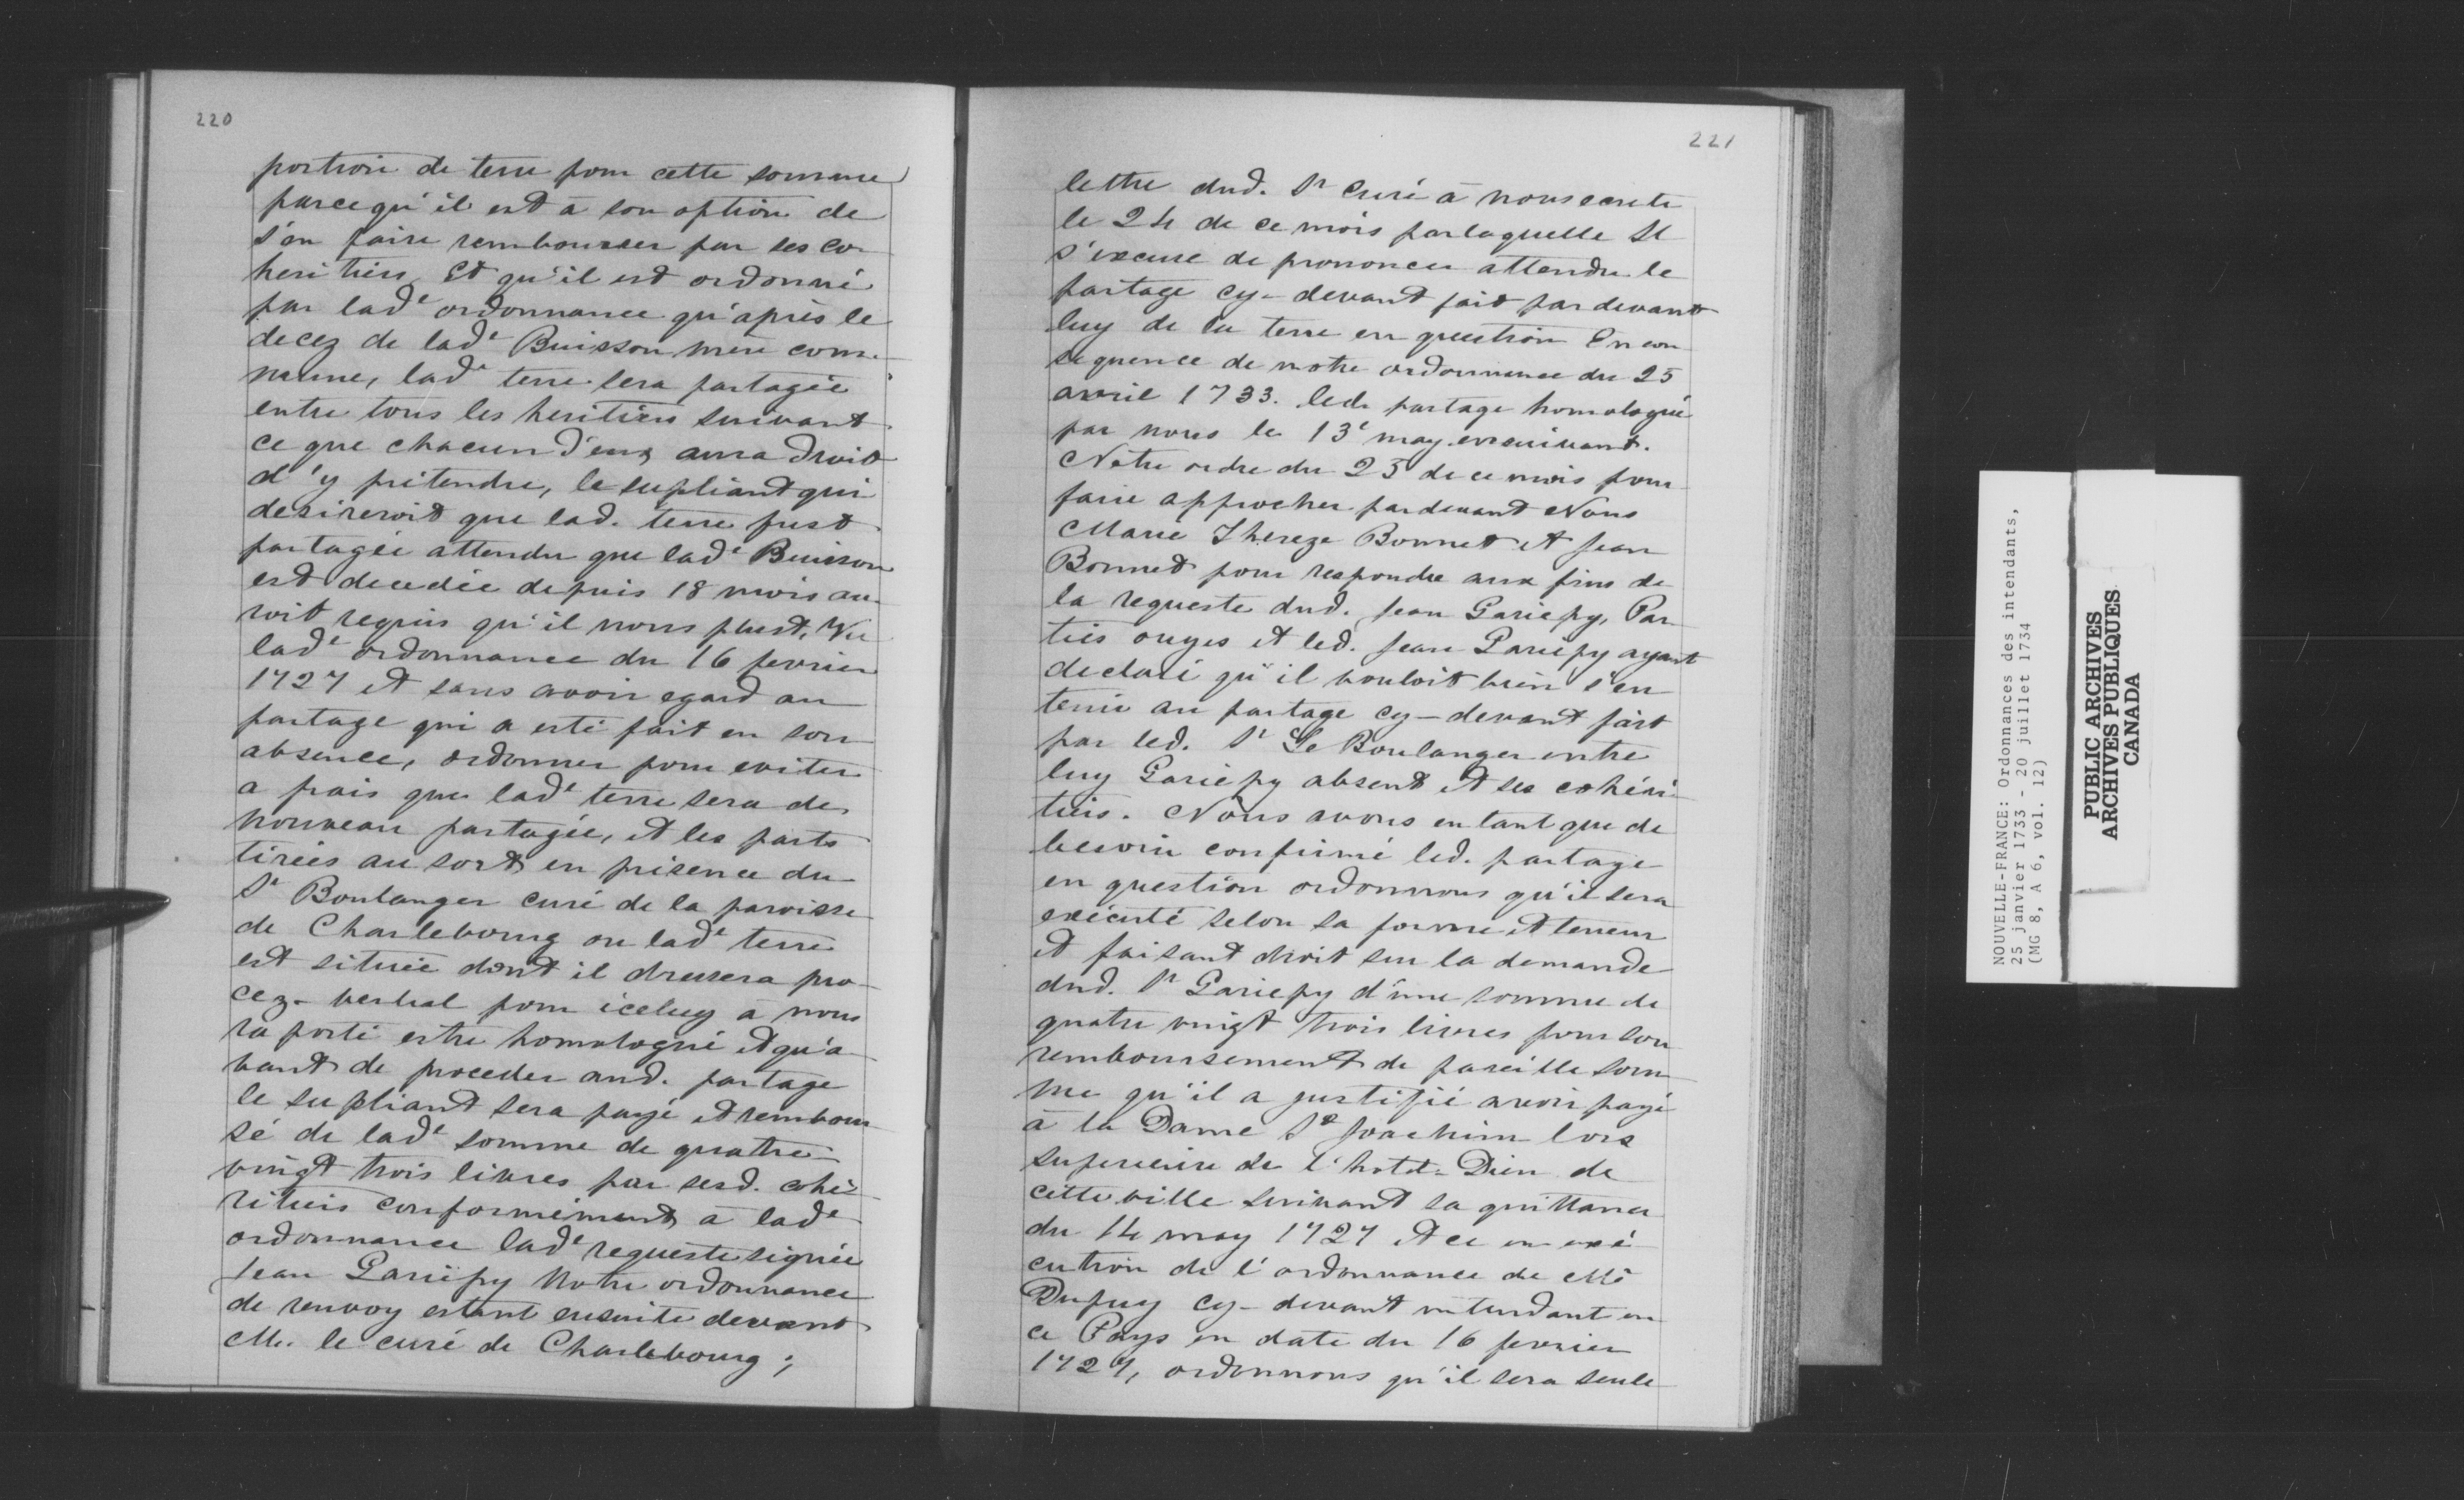 220
portion de terre pour cette somme
parcequ'il est à son option de
s'en faire rembourser par ses co-
heritiers, Et qu'il est ordonné
par lad.e ordonnance qu'après le
decez de lad.e Buisson mere com-
mune, lad.e terre sera partagée
entre tous les heritiers suivant
ce que chacun d'eux aura droit
d'y prétendre, le supliant qui
desireroit que lad. terre fust
partagée attendu que lad.e Buisson
est decedée depuis 18 mois au-
roit requis qu'il nous plust, Vu
lad.e ordonnance du 16 fevrier
1727 et sans avoir egard au
partage qui a esté fait en son
absence, ordonner pour eviter
a frais que lad.e terre sera de
nouveau partagée, et les parts
tirées au sort en présence du
Sr Boulanger curé de la paroisse
de Charlebourg ou lad.e terre
est située dont il dressera pro-
cez-verbal pour iceluy à nous
raporté estre homologué et qu'a-
vant de proceder aud. partage
le supliant sera payé et rembour
sé de lad.e somme de quatre-
vingt trois livres par sesd. cohé-
ritiers conformément à lad.e
ordonnance lad.e requeste signée
Jean Gariépy Notre ordonnance
de renvoy estant ensuite devant
Mr. le curé de Charlebourg;
221
lettre dud. Sr Curé à nous ecrite
le 24 de ce mois par laquelle Il
s'excuse de prononcer attendu le
partage cy-devant fait par devant
luy de la terre en question En con
sequence de notre ordonnance du 25
avril 1733. led. partage homologué
par nous le 13e may ensuivant.
Notre ordre du 25 de ce mois pour
faire approcher pardevant Nous
Marie Thereze Bonnet et Jean
Bonnet pour respondre aux fins de
la requeste dud. Jean Gariepy, Par
ties ouyes et led. Jean Gariépy ayant
declaré qu'il vouloit bien s'en
tenir au partage cy-devant fait
par led. Sr Le Boulanger entre
luy Gariépy absent et ses cohéri-
tiers. Nous avons en tant que de
besoin confirmé led. partage
en question ordonnons qu'il sera
exécuté selon sa forme et teneur
et faisant droit sur la demande
dud. Sr Gariepy d'une somme de
quatre vingt trois livres pour son
remboursement de pareille som
me qu'il a justifié avoir payé
à la Dame Ste Joachim lors
superieure de l'hotel-Dieu de
cette ville suivant sa quittance
du 14 may 1727 et ce en exé-
cution de l'ordonnance de Mr
Dupuy cy-devant intendant en
ce Pays en date du 16 fevrier
1727, ordonnons qu'il sera seule
NOUVELLE-FRANCE: Ordonnances des intendants,
25 janvier 1733 - 20 juillet 1734
(MG 8, A 6, vol. 12)
PUBLIC ARCHIVES
ARCHIVES PUBLIQUES
CANADA